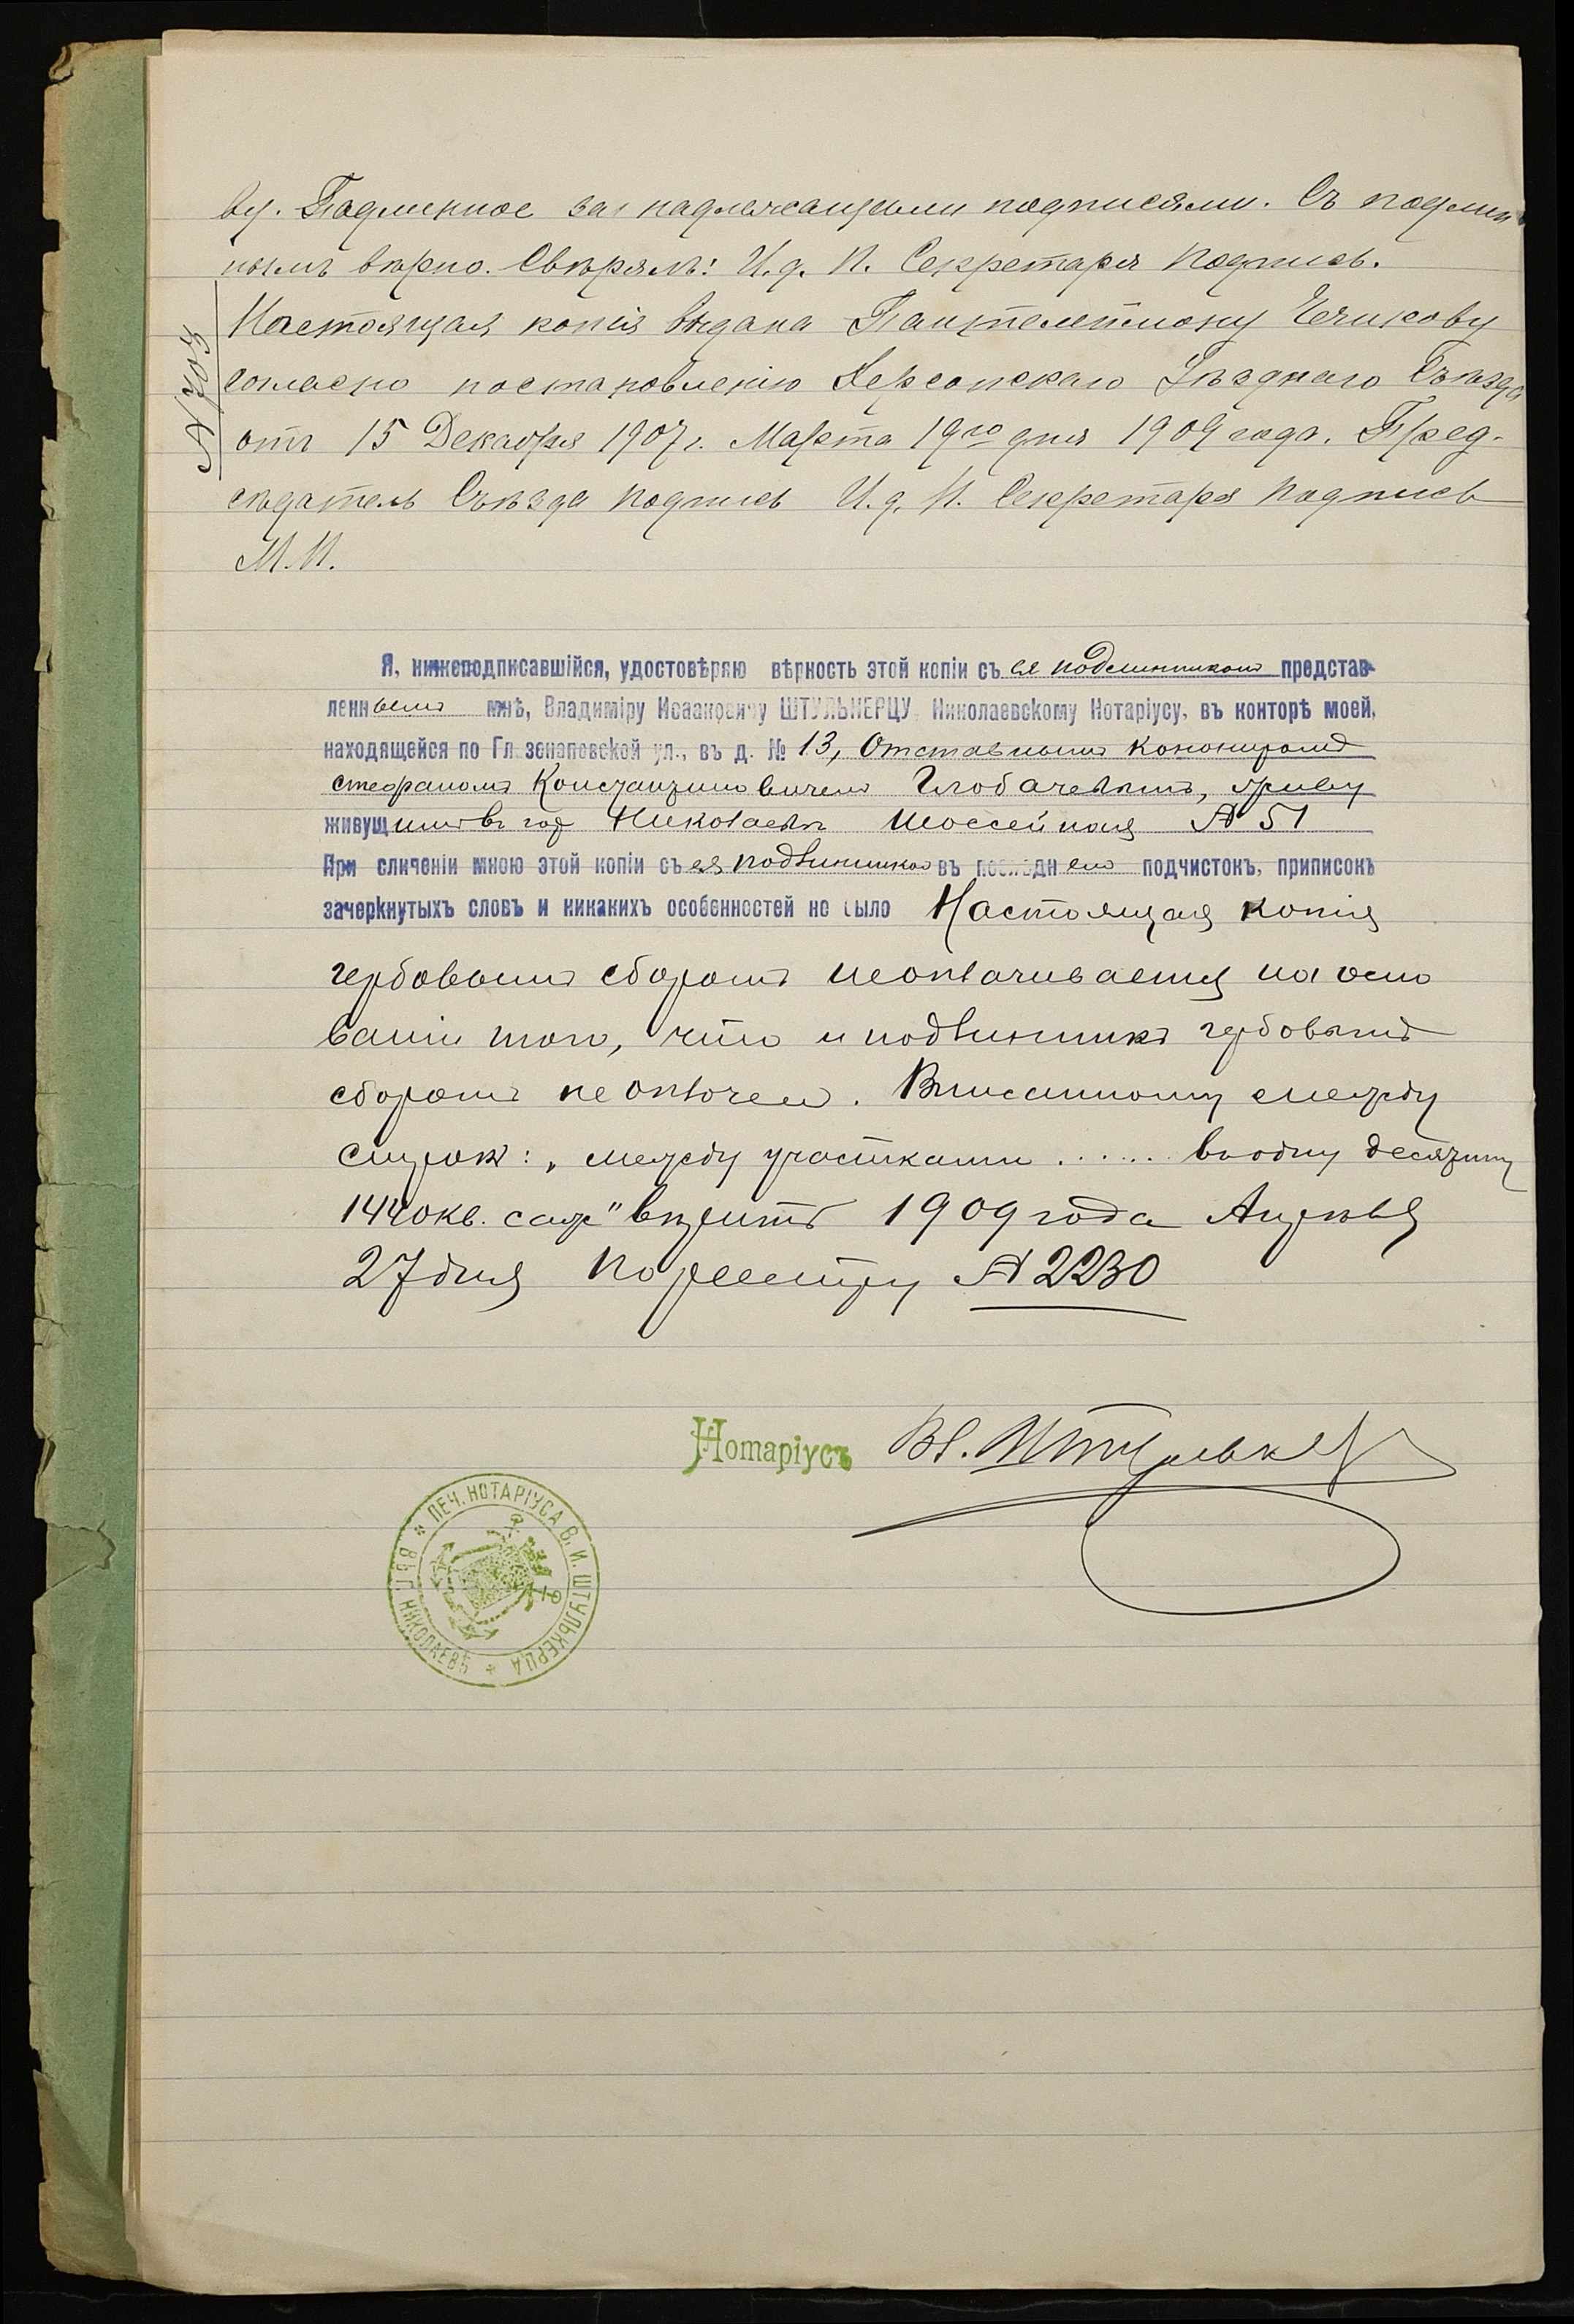 ву. Подлинное за надлежащими подписями. Съ подлин
нымъ вѣрно. Свѣрялъ: И. д. Н. Секретаря Подпись.
Настоящая копія выдана Пантелеймону Чечикову
согласно постановленію Херсонскаго Уѣзднаго Съѣзда
отъ 15 Декабря 1907 г. Марта 19го дня 1909 года. Пред-
сѣдатель Съѣзда Подпись И. д. Н. Секретаря Подпись
М. П.
№ 703
Я, нижеподписавшійся, удостовѣряю вѣрность этой копіи съ ея подлинникомъ представ-
леннымъ мнѣ, Владиміру Исааковичу ШТУЛЬКЕРЦУ Николаевскому Нотаріусу, въ конторѣ моей,
находящейся по Глазенаповской ул., въ д. № 13, Отставнымъ
Стефаномъ Константиновичемъ
живущимъ въ гор Николаевѣ № 51
При сличеніи мною этой копіи съ ея подлинникомъ въ послѣднемъ подчистокъ, приписокъ
зачеркнутыхъ словъ и никакихъ особенностей не было Настоящая копія
гербовымъ сборомъ неоплачивается на осно
ваніи того, что и подлинникъ гербовымъ
сборомъ не оплочен. Вписанному между
строк: „между участками ...... водну десятину
1440 кв. саж" вѣрить 1909 года Апрѣля
27 дня По реестру № 2230
Нотаріусъ Вл. Штулькерц
* ПЕЧ. НОТАРІУСА В. И. ШТУЛЬКЕРЦА * ВЪ Г. НИКОЛАЕВѢ